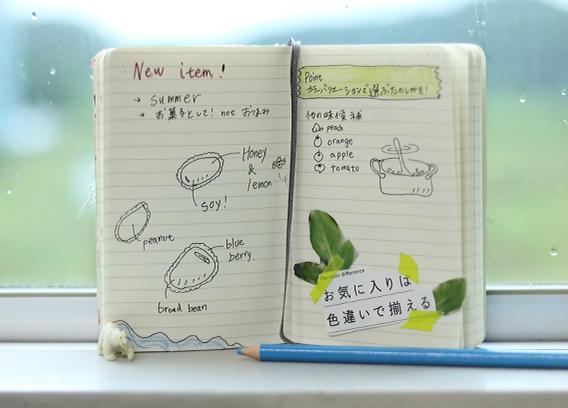 New item!
→ summer
→ お菓子として! not おつまみ
Honey
&
lemon
soy!
peanut
blue
berry.
broad bean
Point
カラーバリエーションで選ぶたのしみを!
他の味候補
peach
orange
apple
tomato
The color difference
お気に入りは
色違いで揃える